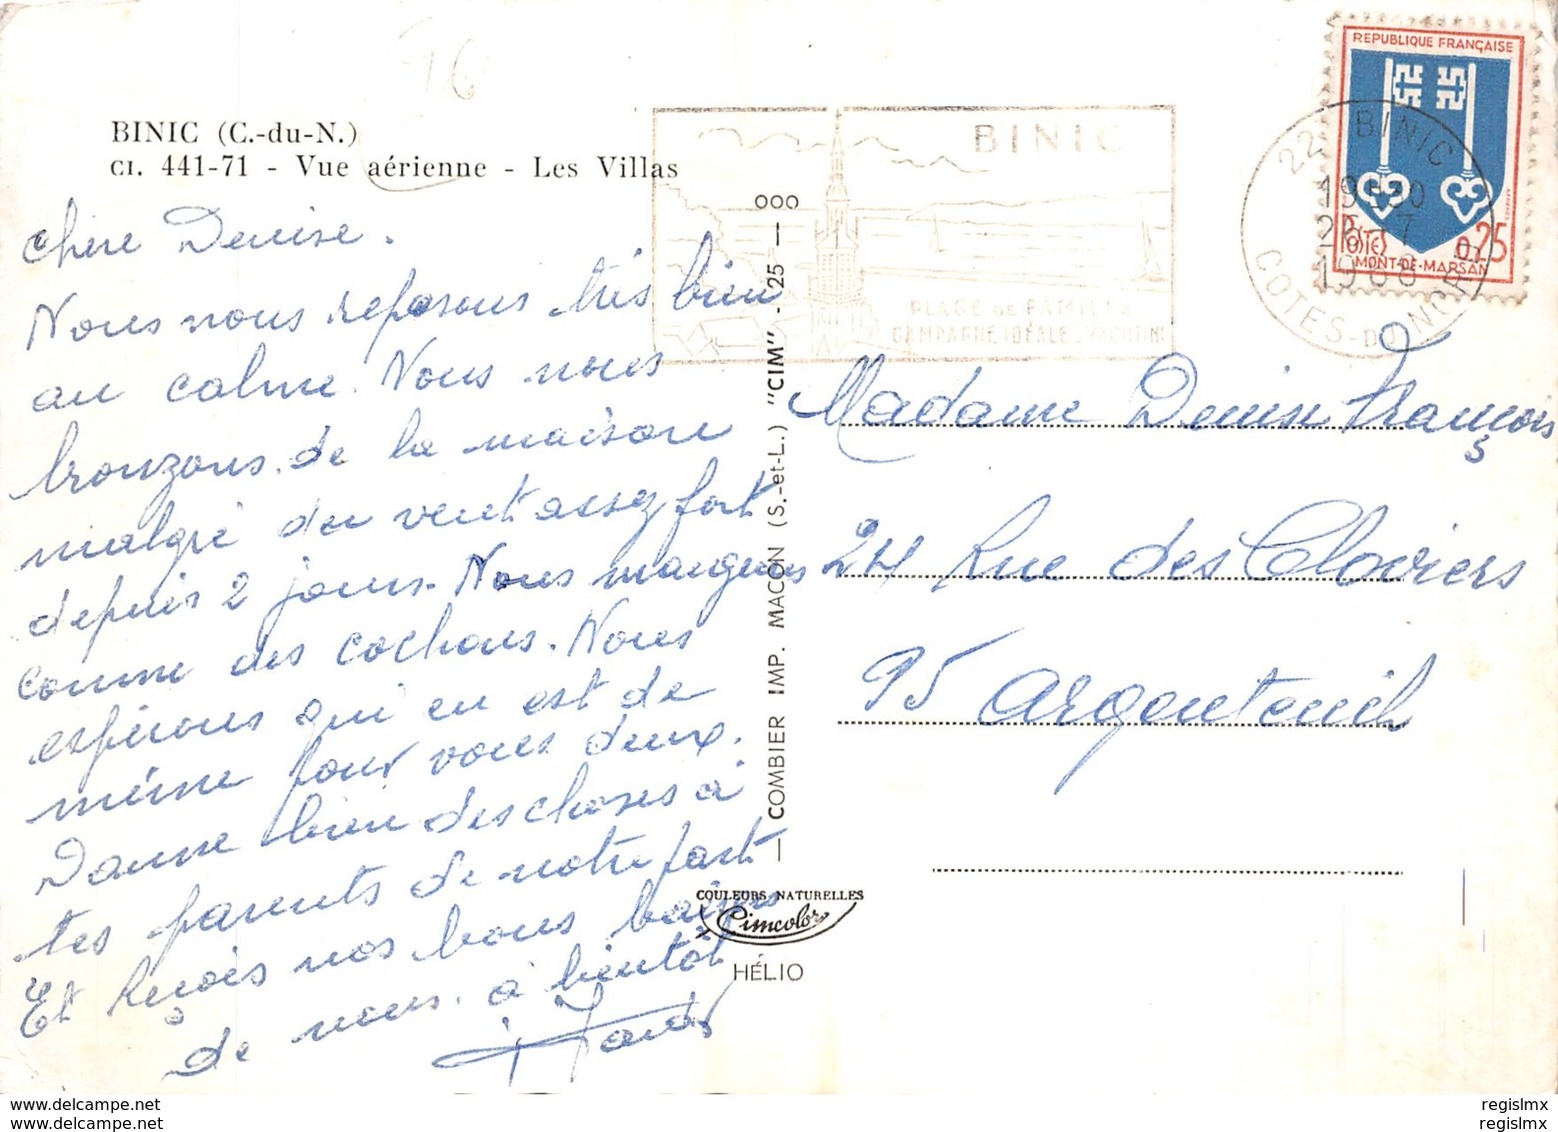 BINIC (C.-du-N.)
CI. 441-71 - Vue aérienne - Les Villas
Chère Denise.
Nous nous reposons très bien
au calme. Nous nous
bronzons de la maison
malgré du vent assez fort
depuis 2 jours. Nous mangeons
comme des cochons. Nous
espérons qui en est de
même pour vous deux.
Donne bien des choses à
tes parents de notre part
Et Reçois nos bons baisers
de nous. à bientôt
— COMBIER IMP. MACON (S.-et-L.) "CIM" - 25 — 000
COULEURS NATURELLES
Cimcolor
HÉLIO
BINIC
PLAGE DE FAMILLE
CAMPAGNE IDÉALE - YACHTING
22 BINIC
19H30
26-7
1966
COTES-DU-NORD
REPUBLIQUE FRANÇAISE
POSTES
0,25
MONT-DE-MARSAN
Madame Denise François
24 Rue des Cloviers
95 Argenteuil
regislmx
regislmx
regislmx
regislmx